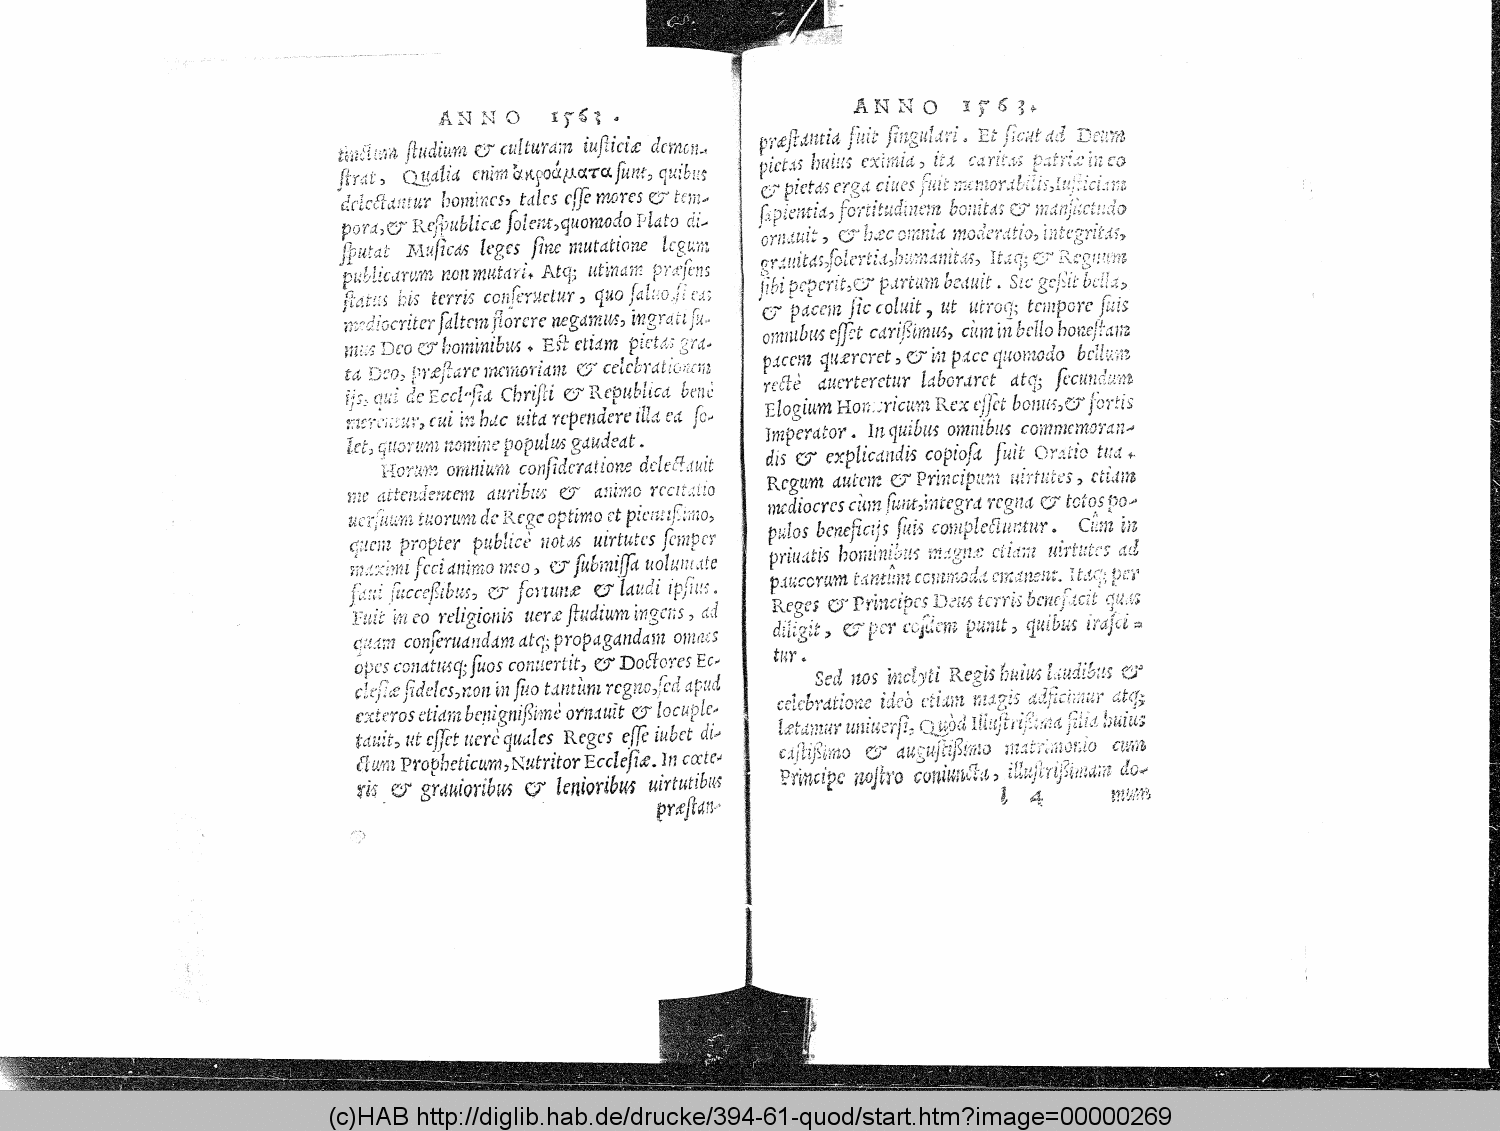 ANNO 1563.
studium & culturam iusticiæ demon-
strat, Qualia enim ἀκροάματα sunt, quibus
delectantur homines, tales esse mores & tem-
pora, & Respublicæ solent, quomodo Plato di-
sputat Musicas leges sine mutatione legum
publicarum non mutari. Atq; utinam præsens
status his terris conseruetur, quo saluo, si eas
mediocriter saltem florere negamus, ingrati su-
mus Deo & hominibus. Est etiam pietas gra-
ta Deo, præstare memoriam & celebrationem
ijs, qui de Ecclesia Christi & Republica benè
merentur, cui in hac uita rependere illa ea so-
let, quorum nomine populus gaudeat.
Horum omnium consideratione delectauit
me attendentem auribus & animo recitatio
uersuum tuorum de Rege optimo et pientissimo,
quem propter publicè notas uirtutes semper
maximi feci animo meo, & submissa uoluntate
faui successibus, & fortunæ & laudi ipsius.
Fuit in eo religionis ueræ studium ingens, ad
quam conseruandam atq; propagandam omnes
opes conatusq; suos conuertit, & Doctores Ec-
clesiæ fideles, non in suo tantùm regno, sed apud
exteros etiam benignißimè ornauit & locuple-
tauit, ut esset uerè quales Reges esse iubet di-
ctum Propheticum, Nutritor Ecclesiæ. In cæte-
ris & grauioribus & lenioribus uirtutibus
præstan-
ANNO 1563.
præstantia fuit singulari. Et sicut ad Deum
pietas huius eximia, ita caritas patriæ in eo
& pietas erga ciues fuit memorabilis, Iusticiam
sapientia, fortitudinem bonitas & mansuetudo
ornauit, & hæc omnia moderatio, integritas,
grauitas, solertia, humanitas, Itaq; & Regnum
sibi peperit, & partum beauit. Sic geßit bella,
& pacem sic coluit, ut utroq; tempore suis
omnibus esset carißimus, cùm in bello honestam
pacem quæreret, & in pace quomodo bellum
rectè auerteretur laboraret atq; secundum
Elogium Homericum Rex esset bonus, & fortis
Imperator. In quibus omnibus commemoran-
dis & explicandis copiosa fuit Oratio tua.
Regum autem & Principum uirtutes, etiam
mediocres cùm sunt, integra regna & totos po-
pulos beneficijs suis complectuntur. Cûm in
priuatis hominibus magnæ etiam uirtutes ad
paucorum tantûm commoda emanent. Itaq; per
Reges & Principes Deus terris benefacit quas
diligit, & per eosdem punit, quibus irasci=
tur.
Sed nos inclyti Regis huius laudibus &
celebratione ideò etiam magis adficimur atq;
lætamur uniuersi, Quòd Illustrißima filia huius
castißimo & augustißimo matrimonio cum
Principe nostro coniuncta, illustrißimam do-
l 4 mum
(c)HAB http://diglib.hab.de/drucke/394-61-quod/start.htm?image=00000269